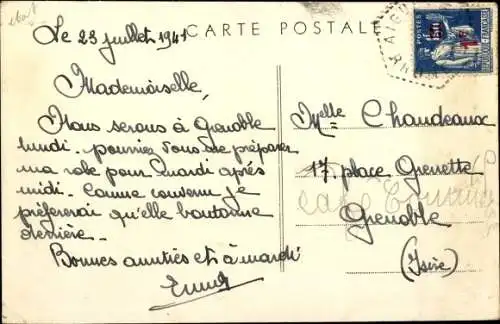 CARTE POSTALE
Le 23 juillet 1941
Mademoiselle,
Nous serons à Grenoble
lundi - pourriez vous me préparer
ma robe pour mardi après
midi - Comme convenu je
préfererai qu'elle boutonne
derrière -
Bonnes amitiés et à mardi
Melle Chaudeaux
17, place Grenette
Grenoble
(Isère)